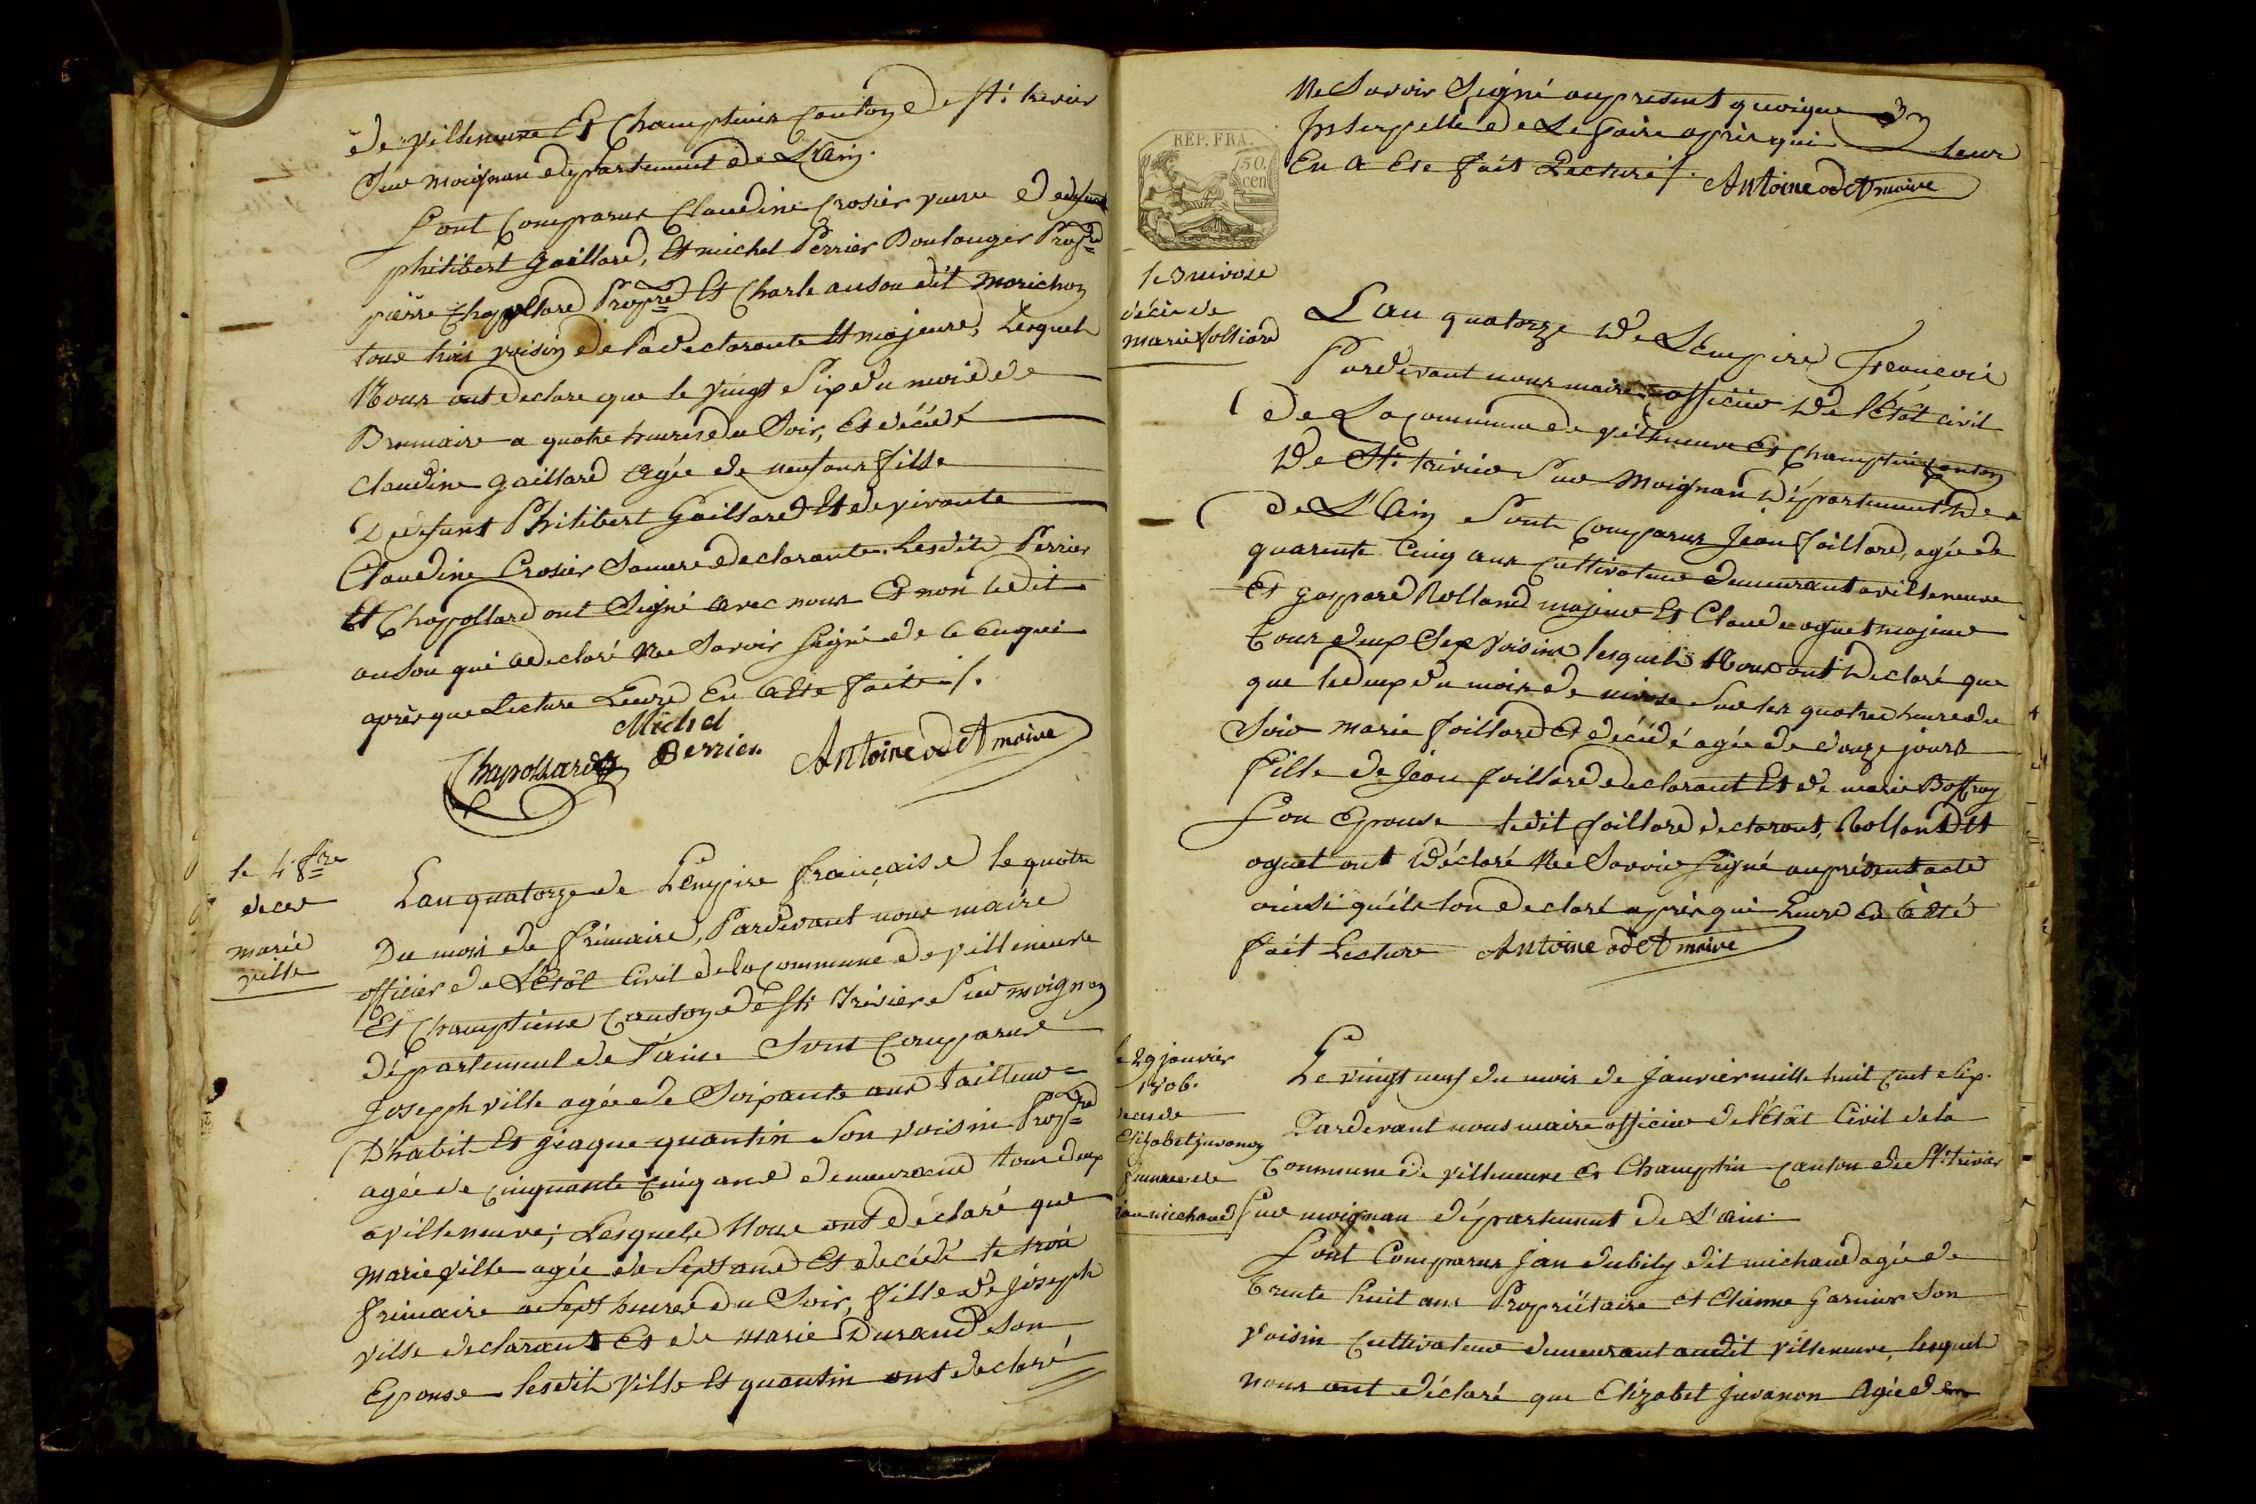 de villeneuve Et Champtein Canton de St. trivier
Sur moignan departement de L'Ain.
Sont Comparus Claudine Crosier veuve de defunt
philibert Gaillard, Et michel Perrier Boulanger Propre
pierre Chapollard Propre Et Charle auson dit morichon
tous trois voisin de la declarante Et majeurs, Lesquels
Nous ont declare que le vingt Six du mois de
Brumaire a quatre heures du Soir, Est décédé
Claudine gaillard Agée de neuf ans fille
De defunt Philibert Gaillard Et de vivante
Claudine Crosier Sa mere declarante. Lesdits Perrier
Et Chapollard ont Signé avec nous Et non ledit
auson qui a declaré Ne Savoir Signé de ce Enquis
après que Lecture Leurs En a Ete faite ./.
Michel
Chapollard Perrier Antoine odet maire
le 4 fre
deces
marie
ville
Lan quatorze de L'empire française le quatre
Du mois de frimaire, Pardevant nous maire
officier de L'Etât Civil de la commune de villeneuve
Et Champtienne Canton de St. Trivier Sur moignan
département de l'ain Sont Comparus
Joseph ville agée de Soixante ans tailleur
D'habit Et Jiaque quantin Son voisin Propre
agée de Cinquante Cinq ans demeurans tous deux
a villeneuve; Lesquels Nous ont déclaré que
Marie ville agée de Sept ans Et decédé le troi
frimaire a Sept heures du Soir, fille de joseph
ville declarant Et de Marie Durand Son
Epouse lesdits ville Et quantin ont declaré
Ne Savoir Signé au present quoique
Interpelle de Le faire après qui leur
En A Ete fait Lecture ./. Antoine odet maire
REP. FRA.
50.
cen
le 3 nivose
décès de
marie folliard
Lan quatorze de L'Empire Francois
Pardevant nous maire officier de l'Etât Civil
de La commune de villeneuve Et Champtein canton
de St. trivier Sur Moignan Département de
de L'Ain Sont Comparus Jean foillard, agée de
quarente Cinq ans Cultivateur demeurant a villeneuve
Et gaspard Rolland majeur Et Claude oguet majeur
tous deux Ses Voisins lesquels Nous ont declaré que
que le deux du mois de nivose Sur les quatre heures du
Soir marie foillard Et décédé agée de douze jours
fille de Jean foillard declarant Et de marie Boffray
Son Epouse ledit foillard declarant, Rolland Et
oguet ont déclaré Ne Savoir Signé au présent acte
ainsi qu'ils lon declaré après qui Leurs En a Eté
fait Lecture Antoine odet maire
le 29 janvier
1806.
deces de
Elizabet juvanon
femme de
jan michaud
Le vingt neuf du mois de janvier mille huit cent Six.
Pardevant nous maire officier de l'Etât Civil de la
Commune de villeneuve Et Champtin canton de St. trivier
Sur moignan département de L'ain.
Sont Comparus jan dubily dit michaud agée de
trente huit ans Propriétaire et Etienne Garnier Son
voisin Cultivateur demeurant audit villeneuve, lesquels
nous ont déclaré que Elizabet juvanon Agée de